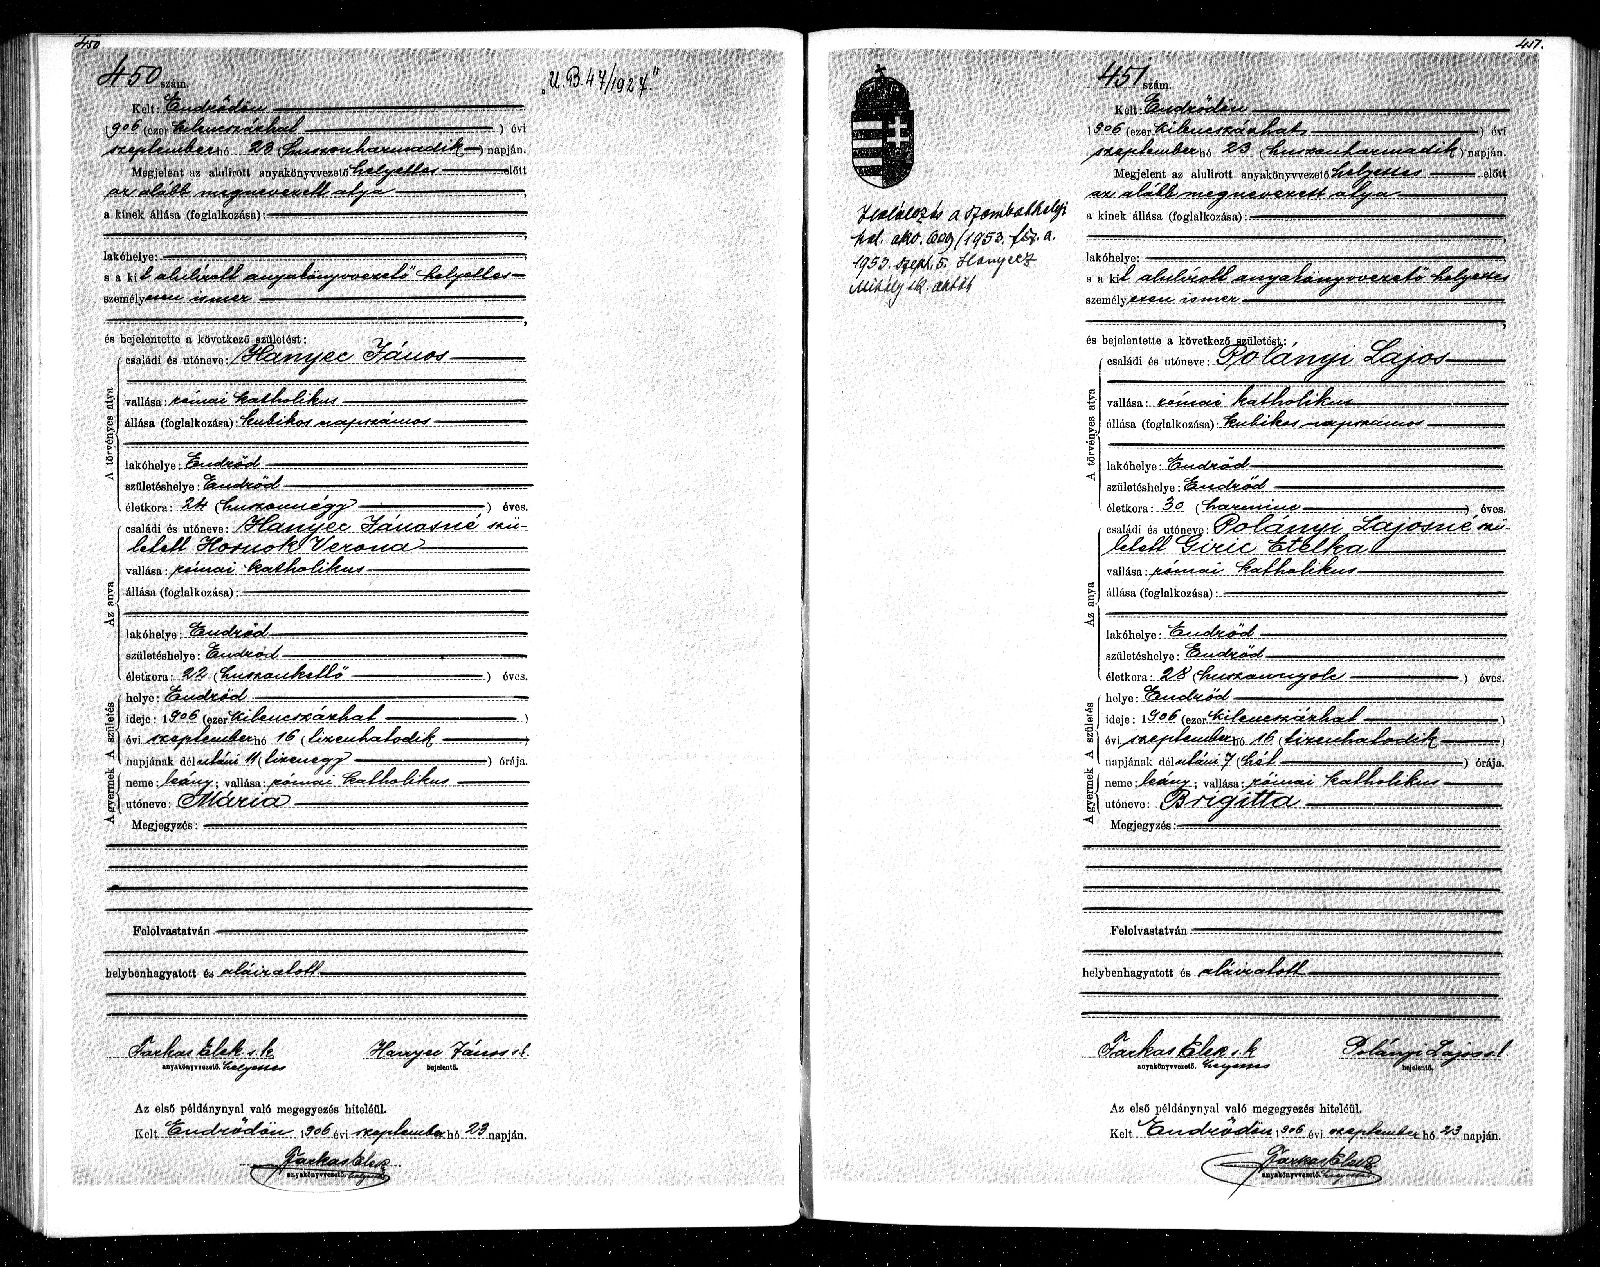 450
450 szám.
"U. B. 47/1927"
Kelt: Endrődön
1906 (ezer kilencszázhat) évi
szeptember hó 23 (huszonharmadik) napján.
Megjelent az alulirott anyakönyvvezető helyettes előtt
az alább megnevezett atya
a kinek állása (foglalkozása):
lakóhelye:
s a kit alulírott anyakönyvvezető helyettes
személyesen ismer
és bejelentette a következő születést:
A törvényes atya
családi és utóneve: Hanyec János
vallása: római katholikus
állása (foglalkozása): kubikos napszámos
lakóhelye: Endrőd
születéshelye: Endrőd
életkora: 24 (huszonnégy) éves.
Az anya
családi és utóneve: Hanyec Jánosné szü-
letett Hornok Verona
vallása: római katholikus
állása (foglalkozása):
lakóhelye: Endrőd
születéshelye: Endrőd
életkora: 22 (huszonkettő) éves.
A gyermek A születés
helye: Endrőd
ideje: 1906 (ezer kilencszázhat)
évi szeptember hó 16 (tizenhatodik)
napjának délutáni 11 (tizenegy) órája.
neme: leány; vallása: római katholikus
utóneve: Mária
Megjegyzés:
Felolvastatván
helybenhagyatott és aláiratott
Farkas Elek s. k. Hanyec János s. k.
anyakönyvvezető. helyettes bejelentő.
Az első példánynyal való megegyezés hiteléül.
Kelt Endrődön 1906 évi szeptember hó 23 napján.
Farkas Elek
anyakönyvvezető. helyettes
451.
451 szám.
a Szombathelyi
1953. szept. 5. Hanyecz
Mihály
Kelt: Endrődön
1906 (ezer kilencszázhat) évi
szeptember hó 23 (huszonharmadik) napján.
Megjelent az alulirott anyakönyvvezető helyettes előtt
az alább megnevezett atya
a kinek állása (foglalkozása):
lakóhelye:
s a kit alulírott anyakönyvvezető helyettes
személyesen ismer
és bejelentette a következő születést:
A törvényes atya
családi és utóneve: Polányi Lajos
vallása: római katholikus
állása (foglalkozása): kubikos napszámos
lakóhelye: Endrőd
születéshelye: Endrőd
életkora: 30 (harminc) éves.
Az anya
családi és utóneve: Polányi Lajosné szü-
letett Giric Etelka
vallása: római katholikus
állása (foglalkozása):
lakóhelye: Endrőd
születéshelye: Endrőd
életkora: 28 (huszonnyolc) éves.
A gyermek A születés
helye: Endrőd
ideje: 1906 (ezer kilencszázhat)
évi szeptember hó 16 (tizenhatodik)
napjának délutáni 7 (hét) órája.
neme: leány; vallása: római katholikus
utóneve: Brigitta
Megjegyzés:
Felolvastatván
helybenhagyatott és aláiratott
Farkas Elek s. k. Polányi Lajos s. k.
anyakönyvvezető. helyettes bejelentő.
Az első példánynyal való megegyezés hiteléül.
Kelt Endrődön 1906 évi szeptember hó 23 napján.
Farkas Elek
anyakönyvvezető. helyettes